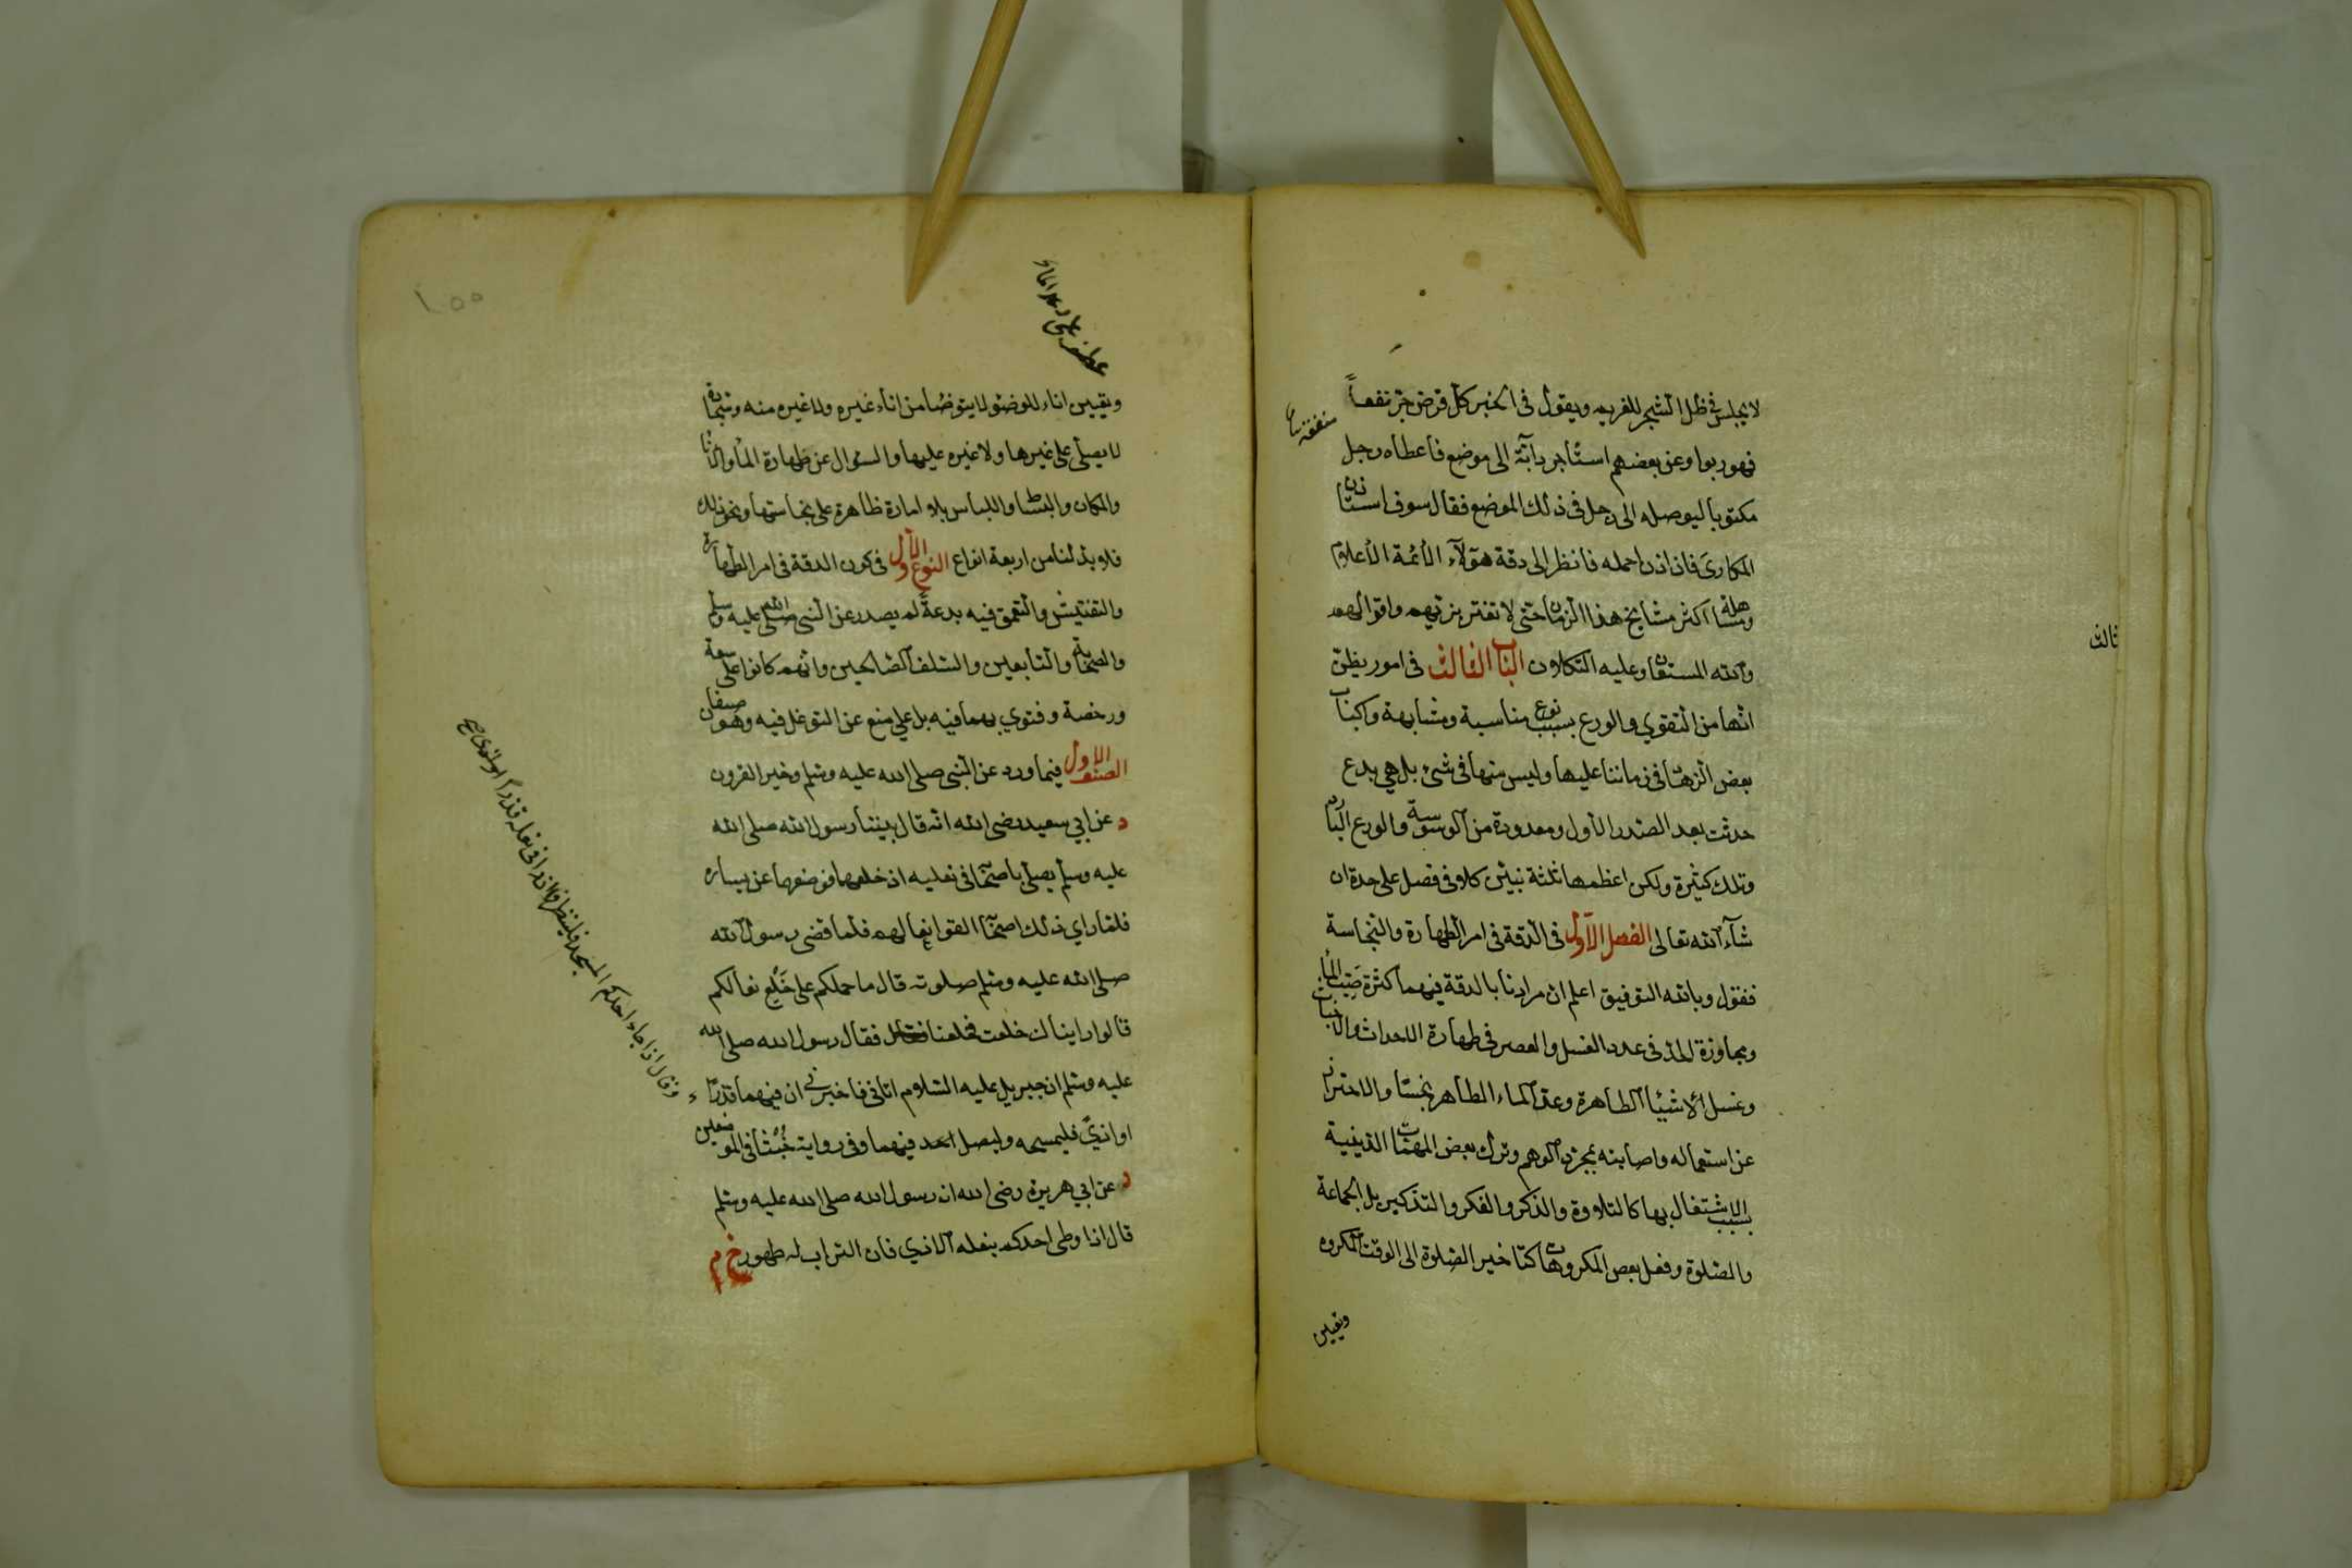 لا يجلس في ظل الشجر للغريم ويقول في الخبر كل قرض جر نفعاً
منفعة
فهو ربوا وعن بعضهم استأجر دابة الى موضع فاعطاه رجل
مكتوبا ليوصله الى رجل في ذلك الموضع فقال سوف استأذن
المكارى فان اذن احمله فانظر الى دقة هؤلآء الأئمة الأعلام
اكثر مشايخ هذا الزمان حتى لا تغتر بزيهم واقوالهم
والله المستعان وعليه التكلان الباب الثالث في امور يظن
ثالث
انها من التقوي والورع بسبب نوع مناسبة ومشابهة واكباب
بعض الزهاد في زماننا عليها وليس منها في شئ بل هي بدع
حدثت بعد الصدر الأول ومعدودة من الوسوسة والورع البارد
وتلك كثيرة ولكن اعظمها ثلثة نبين كلا في فصل على حدة ان
شآء الله تعالى الفصل الأول في الدقة في امر الطهارة والنجاسة
فنقول وبالله التوفيق اعلم ان مرادنا بالدقة فيهما كثرة صب الماء
ومجاوزة الحد في عدد الغسل والعصر في طهارة الاحداث والاخباث
وغسل الاشياء الطاهرة وعد الماء الطاهر نجسا والاحتراز
عن استعماله واصابته بمجرد الوهم وترك بعض المهمات الدينية
بسبب الاشتغال بها كالتلاوة والذكر والفكر والتذكير بل الجماعة
والصلوة وفعل بعض المكروهات كتاخير الصلوة الى الوقت المكروه
وتعيين
١٥٥
وتعيين اناء للوضو لا يتوضا من اناء غيره ولا غيره منه وسجادة
لا يصلى على غيرها ولا غيره عليها والسؤال عن طهارة الماء والاناء
والمكان والبساط واللباس بلا امارة ظاهرة على نجاستها ونحو ذلك
فلا بد لنا من اربعة انواع النوع الأول في كون الدقة في امر الطهارة
والتفتيش والتعمق فيه بدعة لم يصدر عن النبى صلى الله عليه وسلم
والصحابة والتابعين والسلف الصالحين وانهم كانوا على سعة
ورخصة وفتوي بهما فيه بل على منع عن التوغل فيه وهو صنفان
الصنف الاول فيما ورد عن النبى صلى الله عليه وسلم وخير القرون
د عن ابي سعيد رضى الله انه قال بينما رسول الله صلى الله
عليه وسلم يصلى باصحابه في نعليه اذ خلعهما فوضعهما عن يساره
فلما راي ذلك اصحابه القوا نعالهم فلما قضى رسول الله
صلى الله عليه وسلم صلوته قال ما حملكم على خلع نعالكم
قالوا رايناك خلعت فخلعنا فقال رسول الله صلى الله
عليه وسلم ان جبريل عليه السلام اتانى فاخبرني ان فيهما قذرا
وقال اذا جاء احدكم المسجد فلينظر فان راى في نعله قذرا او اذى صح
او اذى فليمسحه وليصل فيهما وفي رواية خبثا في الموضعين
د عن ابي هريرة رضى الله ان رسول الله صلى الله عليه وسلم
قال اذا وطى احدكم بنعله الاذي فان التراب له طهور خ م